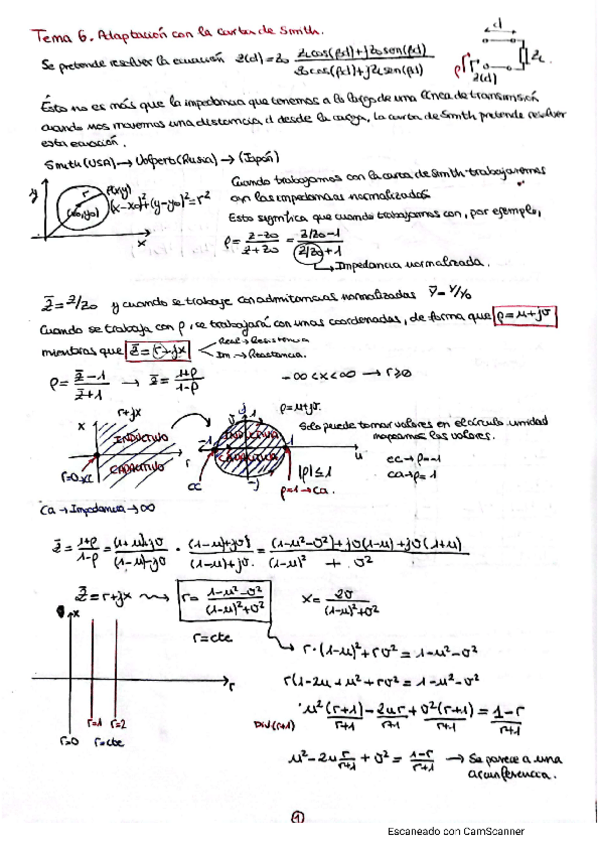 Tema 6. Adaptación con la carta de Smith.
Se pretende resolver la ecuación z(d) = z₀ (z_L cos(βd) + j z₀ sen(βd)) / (z₀ cos(βd) + j z_L sen(βd))
d
ρ
Z_L
z(d)
Esto no es más que la impedancia que tenemos a lo largo de una línea de transmisión
cuando nos movemos una distancia d desde la carga, la carta de Smith pretende resolver
esta ecuación.
Smith (USA) → Volpert (Rusia) → (Japón)
y
r
P(x,y)
(x₀,y₀)
(x-x₀)²+(y-y₀)² = r²
x
Cuando trabajamos con la carta de Smith trabajaremos
con las impedancias normalizadas.
Esto significa que cuando trabajamos con, por ejemplo,
ρ = (z-z₀)/(z+z₀) = (z/z₀-1)/(z/z₀+1)
↳ Impedancia normalizada.
z̄ = z/z₀ y cuando se trabaje con admitancias normalizadas ȳ = Y/Y₀
Cuando se trabaja con ρ, se trabajará con unas coordenadas, de forma que ρ = u+jv
mientras que z̄ = r+jx
Real → Resistencia
Im → Reactancia.
ρ = (z̄-1)/(z̄+1) → z̄ = (1+ρ)/(1-ρ)
-∞<x<∞ → r≥0
r+jx
x
INDUCTIVO
CAPACITIVO
r
r=0
j
-1
1
INDUCTIVA
CAPACITIVA
-j
u
cc
ρ=u+jv.
|ρ|≤1
ρ=1→ca.
Solo puede tomar valores en el círculo unidad
mapeamos los valores.
cc→ρ=-1
ca→ρ=1
Ca → Impedancia → ∞
z̄ = (1+ρ)/(1-ρ) = ((1+u)+jv)/((1-u)-jv) · ((1-u)+jv)/((1-u)+jv) = ((1-u²-v²)+jv(1-u)+jv(1+u))/((1-u)² + v²)
z̄ = r+jx ⟿ r = (1-u²-v²)/((1-u)²+v²)
x = 2v/((1-u)²+v²)
r=cte
x
r
r=0
r=1
r=2
r=cte
r·(1-u)²+rv² = 1-u²-v²
r(1-2u+u²+rv² = 1-u²-v²
Div(r+1)
u²(r+1)/(r+1) - 2ur/(r+1) + v²(r+1)/(r+1) = (1-r)/(r+1)
u²-2u r/(r+1) + v² = (1-r)/(r+1) → Se parece a una
circunferencia.
1
Escaneado con CamScanner